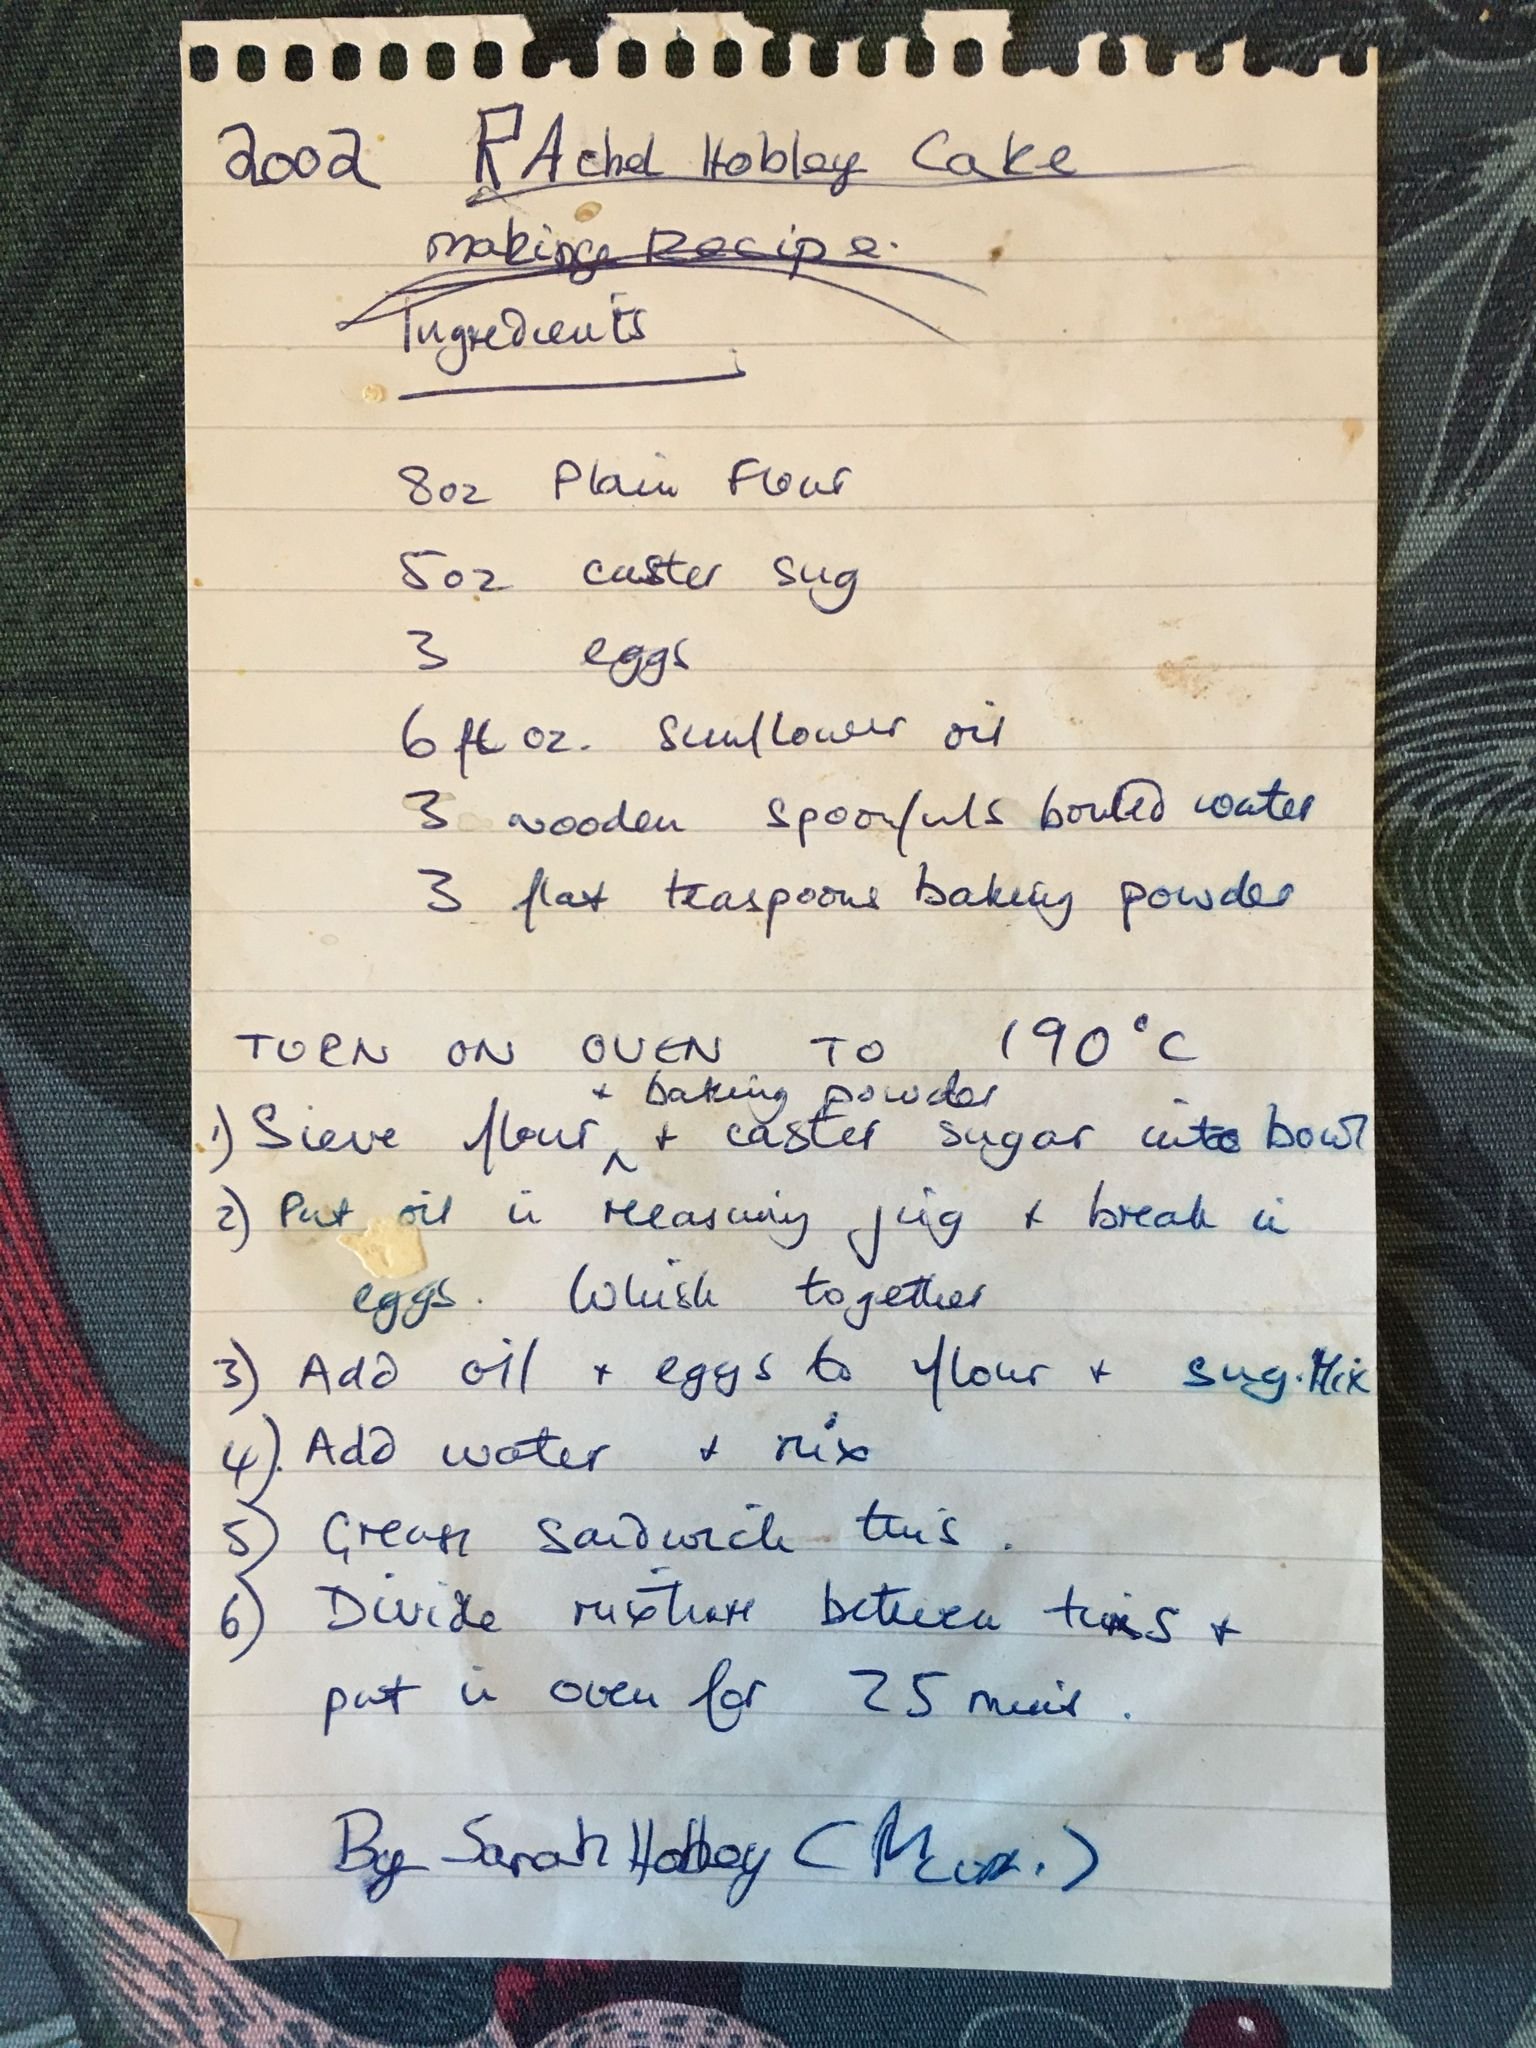 2002 RAchel Hobley Cake
making Recipe.
Ingredients
8oz Plain Flour
5oz caster sug
3 eggs
6 fl oz. sunflower oil
3 wooden spoonfuls boiled water
3 flat teaspoons baking powder
TURN ON OVEN TO 190°C
+ baking powder
1) Sieve flour ^ + caster sugar into bowl
2) Put oil in measuring jug + break in
eggs. Whisk together
3) Add oil + eggs to flour + sug. Mix
4). Add water + mix
5) Grease sandwich tins.
6) Divide mixture between tins +
put in oven for 25 mins.
By Sarah Hobley (Mum.)